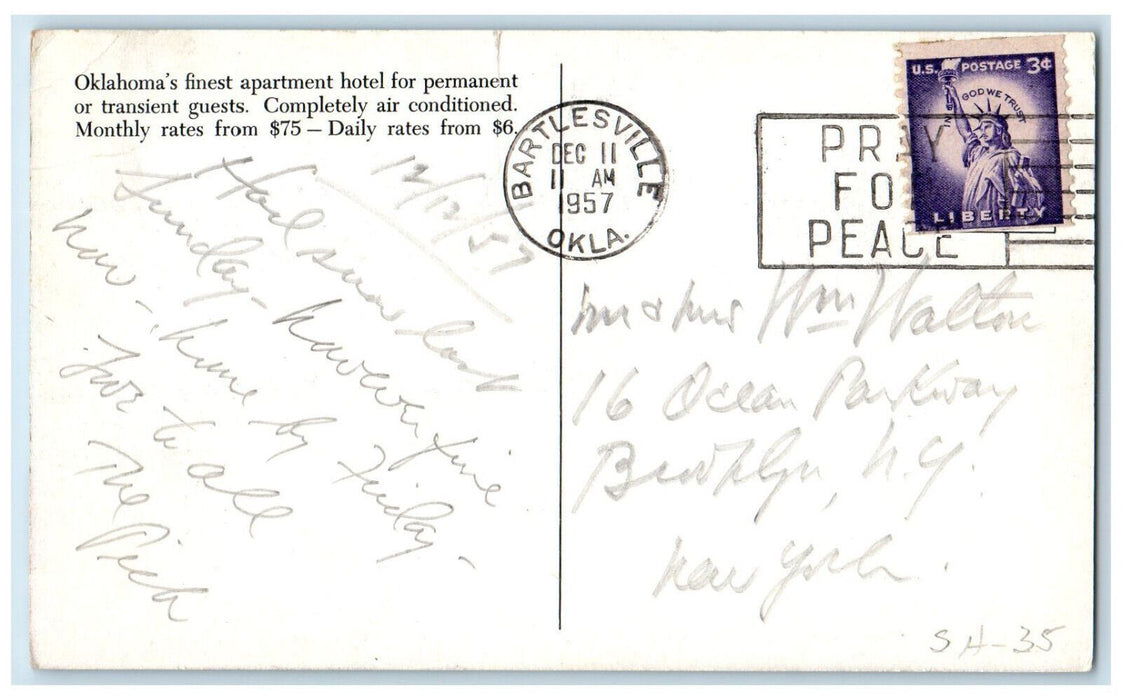 Oklahoma's finest apartment hotel for permanent
or transient guests. Completely air conditioned.
Monthly rates from $75 — Daily rates from $6.
12/12/57
Here since last
Sunday - have a fine
now - home by Friday -
Love to all
The Pick
BARTLESVILLE
DEC 11
11 AM
1957
OKLA.
PRAY
FOR
PEACE
U.S. POSTAGE 3¢
IN GOD WE TRUST
LIBERTY
Mr & Mrs Wm Walton
16 Ocean Parkway
Brooklyn, N.Y.
New York.
SH-35